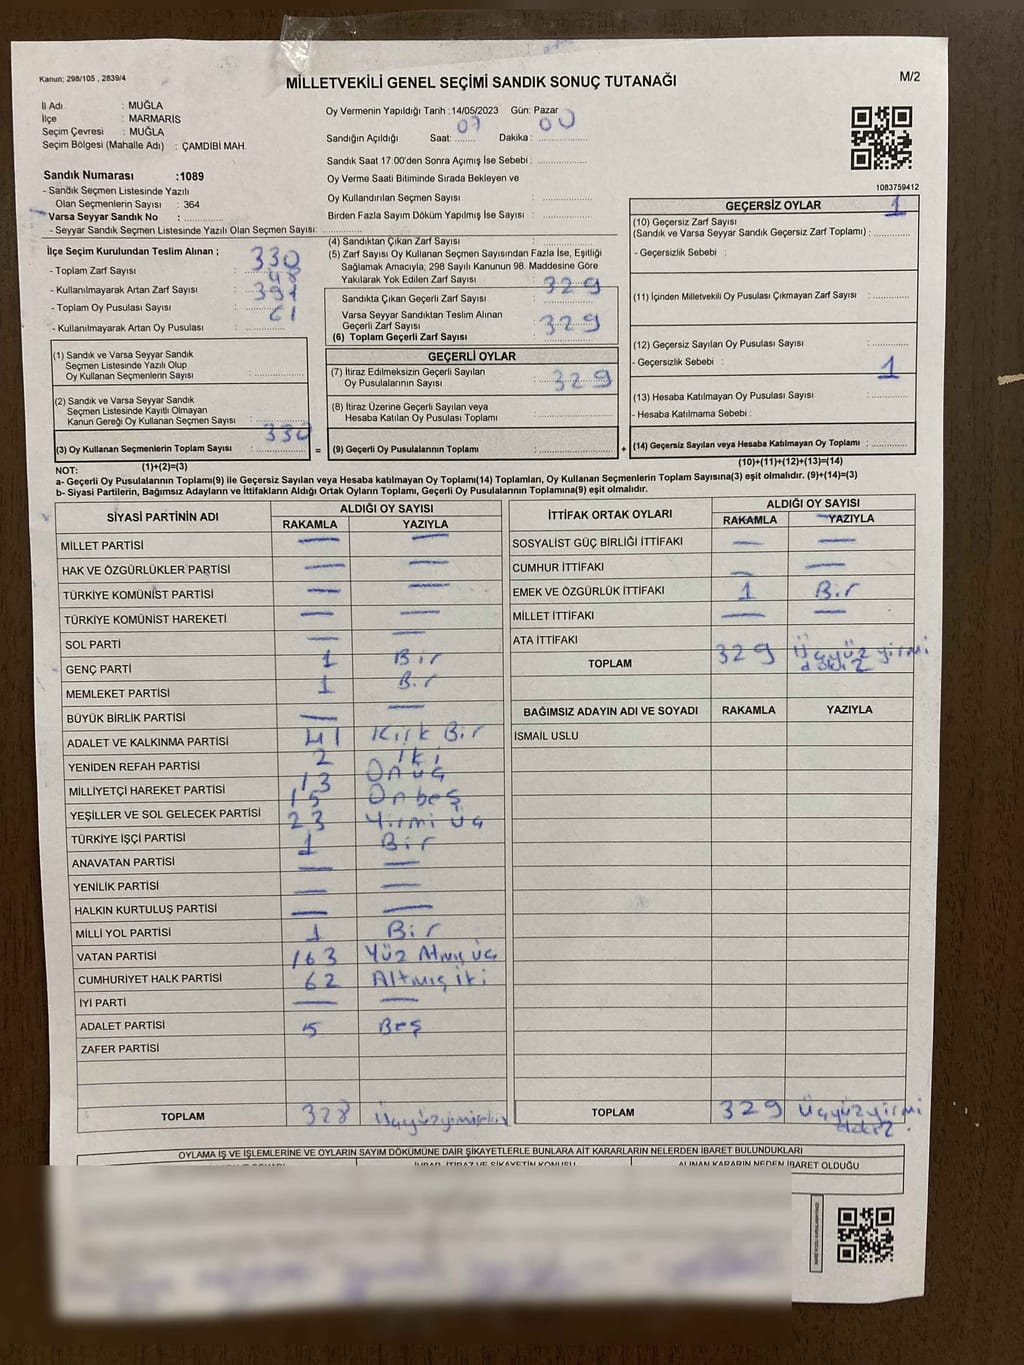 Kanun; 298/105 , 2839/4
MİLLETVEKİLİ GENEL SEÇİMİ SANDIK SONUÇ TUTANAĞI
M/2
İl Adı : MUĞLA
İlçe : MARMARİS
Seçim Çevresi : MUĞLA
Seçim Bölgesi (Mahalle Adı) : ÇAMDİBİ MAH.
Oy Vermenin Yapıldığı Tarih :14/05/2023 Gün: Pazar
Sandığın Açıldığı Saat: 07 Dakika : 00
Sandık Saat 17:00'den Sonra Açımış İse Sebebi :
Oy Verme Saati Bitiminde Sırada Bekleyen ve
Oy Kullandırılan Seçmen Sayısı :
Birden Fazla Sayım Döküm Yapılmış İse Sayısı :
1083759412
Sandık Numarası :1089
- Sandık Seçmen Listesinde Yazılı
Olan Seçmenlerin Sayısı : 364
Varsa Seyyar Sandık No :
- Seyyar Sandık Seçmen Listesinde Yazılı Olan Seçmen Sayısı:
İlçe Seçim Kurulundan Teslim Alınan ;
- Toplam Zarf Sayısı : 330
- Kullanılmayarak Artan Zarf Sayısı :
- Toplam Oy Pusulası Sayısı : 391
- Kullanılmayarak Artan Oy Pusulası : 61
(1) Sandık ve Varsa Seyyar Sandık
Seçmen Listesinde Yazılı Olup
Oy Kullanan Seçmenlerin Sayısı :
(2) Sandık ve Varsa Seyyar Sandık
Seçmen Listesinde Kayıtlı Olmayan
Kanun Gereği Oy Kullanan Seçmen Sayısı :
(3) Oy Kullanan Seçmenlerin Toplam Sayısı : 330
(1)+(2)=(3)
(4) Sandıktan Çıkan Zarf Sayısı :
(5) Zarf Sayısı Oy Kullanan Seçmen Sayısından Fazla İse, Eşitliği
Sağlamak Amacıyla, 298 Sayılı Kanunun 98. Maddesine Göre
Yakılarak Yok Edilen Zarf Sayısı :
Sandıkta Çıkan Geçerli Zarf Sayısı : 329
Varsa Seyyar Sandıktan Teslim Alınan
Geçerli Zarf Sayısı :
(6) Toplam Geçerli Zarf Sayısı : 329
GEÇERLİ OYLAR
(7) İtiraz Edilmeksizin Geçerli Sayılan
Oy Pusulalarının Sayısı : 329
(8) İtiraz Üzerine Geçerli Sayılan veya
Hesaba Katılan Oy Pusulası Toplamı :
= (9) Geçerli Oy Pusulalarının Toplamı :
GEÇERSİZ OYLAR 1
(10) Geçersiz Zarf Sayısı
(Sandık ve Varsa Seyyar Sandık Geçersiz Zarf Toplamı) :
- Geçersizlik Sebebi :
(11) İçinden Milletvekili Oy Pusulası Çıkmayan Zarf Sayısı :
(12) Geçersiz Sayılan Oy Pusulası Sayısı :
- Geçersizlik Sebebi : 1
(13) Hesaba Katılmayan Oy Pusulası Sayısı :
- Hesaba Katılmama Sebebi :
+ (14) Geçersiz Sayılan veya Hesaba Katılmayan Oy Toplamı :
(10)+(11)+(12)+(13)=(14)
NOT:
a- Geçerli Oy Pusulalarının Toplamı(9) ile Geçersiz Sayılan veya Hesaba katılmayan Oy Toplamı(14) Toplamları, Oy Kullanan Seçmenlerin Toplam Sayısına(3) eşit olmalıdır. (9)+(14)=(3)
b- Siyasi Partilerin, Bağımsız Adayların ve İttifakların Aldığı Ortak Oyların Toplamı, Geçerli Oy Pusulalarının Toplamına(9) eşit olmalıdır.
SİYASİ PARTİNİN ADI
ALDIĞI OY SAYISI
RAKAMLA YAZIYLA
MİLLET PARTİSİ — —
HAK VE ÖZGÜRLÜKLER PARTİSİ — —
TÜRKİYE KOMÜNİST PARTİSİ — —
TÜRKİYE KOMÜNİST HAREKETİ — —
SOL PARTİ — —
GENÇ PARTİ 1 Bir
MEMLEKET PARTİSİ 1 Bir
BÜYÜK BİRLİK PARTİSİ — —
ADALET VE KALKINMA PARTİSİ 41 Kırk Bir
YENİDEN REFAH PARTİSİ 2 İki
MİLLİYETÇİ HAREKET PARTİSİ 13 Onüç
YEŞİLLER VE SOL GELECEK PARTİSİ 15 Onbeş
TÜRKİYE İŞÇİ PARTİSİ 23 Yirmi üç
ANAVATAN PARTİSİ 1 Bir
YENİLİK PARTİSİ — —
HALKIN KURTULUŞ PARTİSİ — —
MİLLİ YOL PARTİSİ — —
VATAN PARTİSİ 1 Bir
CUMHURİYET HALK PARTİSİ 163 Yüz Atmış üç
İYİ PARTİ 62 Altmış iki
ADALET PARTİSİ — —
ZAFER PARTİSİ 5 Beş
TOPLAM 328
İTTİFAK ORTAK OYLARI
ALDIĞI OY SAYISI
RAKAMLA YAZIYLA
SOSYALİST GÜÇ BİRLİĞİ İTTİFAKI — —
CUMHUR İTTİFAKI — —
EMEK VE ÖZGÜRLÜK İTTİFAKI 1 Bir
MİLLET İTTİFAKI — —
ATA İTTİFAKI
TOPLAM 329 Üçyüz yirmi
BAĞIMSIZ ADAYIN ADI VE SOYADI RAKAMLA YAZIYLA
İSMAİL USLU
TOPLAM 329 Üçyüz yirmi
OYLAMA İŞ VE İŞLEMLERİNE VE OYLARIN SAYIM DÖKÜMÜNE DAİR ŞİKAYETLERLE BUNLARA AİT KARARLARIN NELERDEN İBARET BULUNDUKLARI
İHBAR, İTİRAZ VE ŞİKAYETİN KONUSU
ALINAN KARARIN NEDEN İBARET OLDUĞU